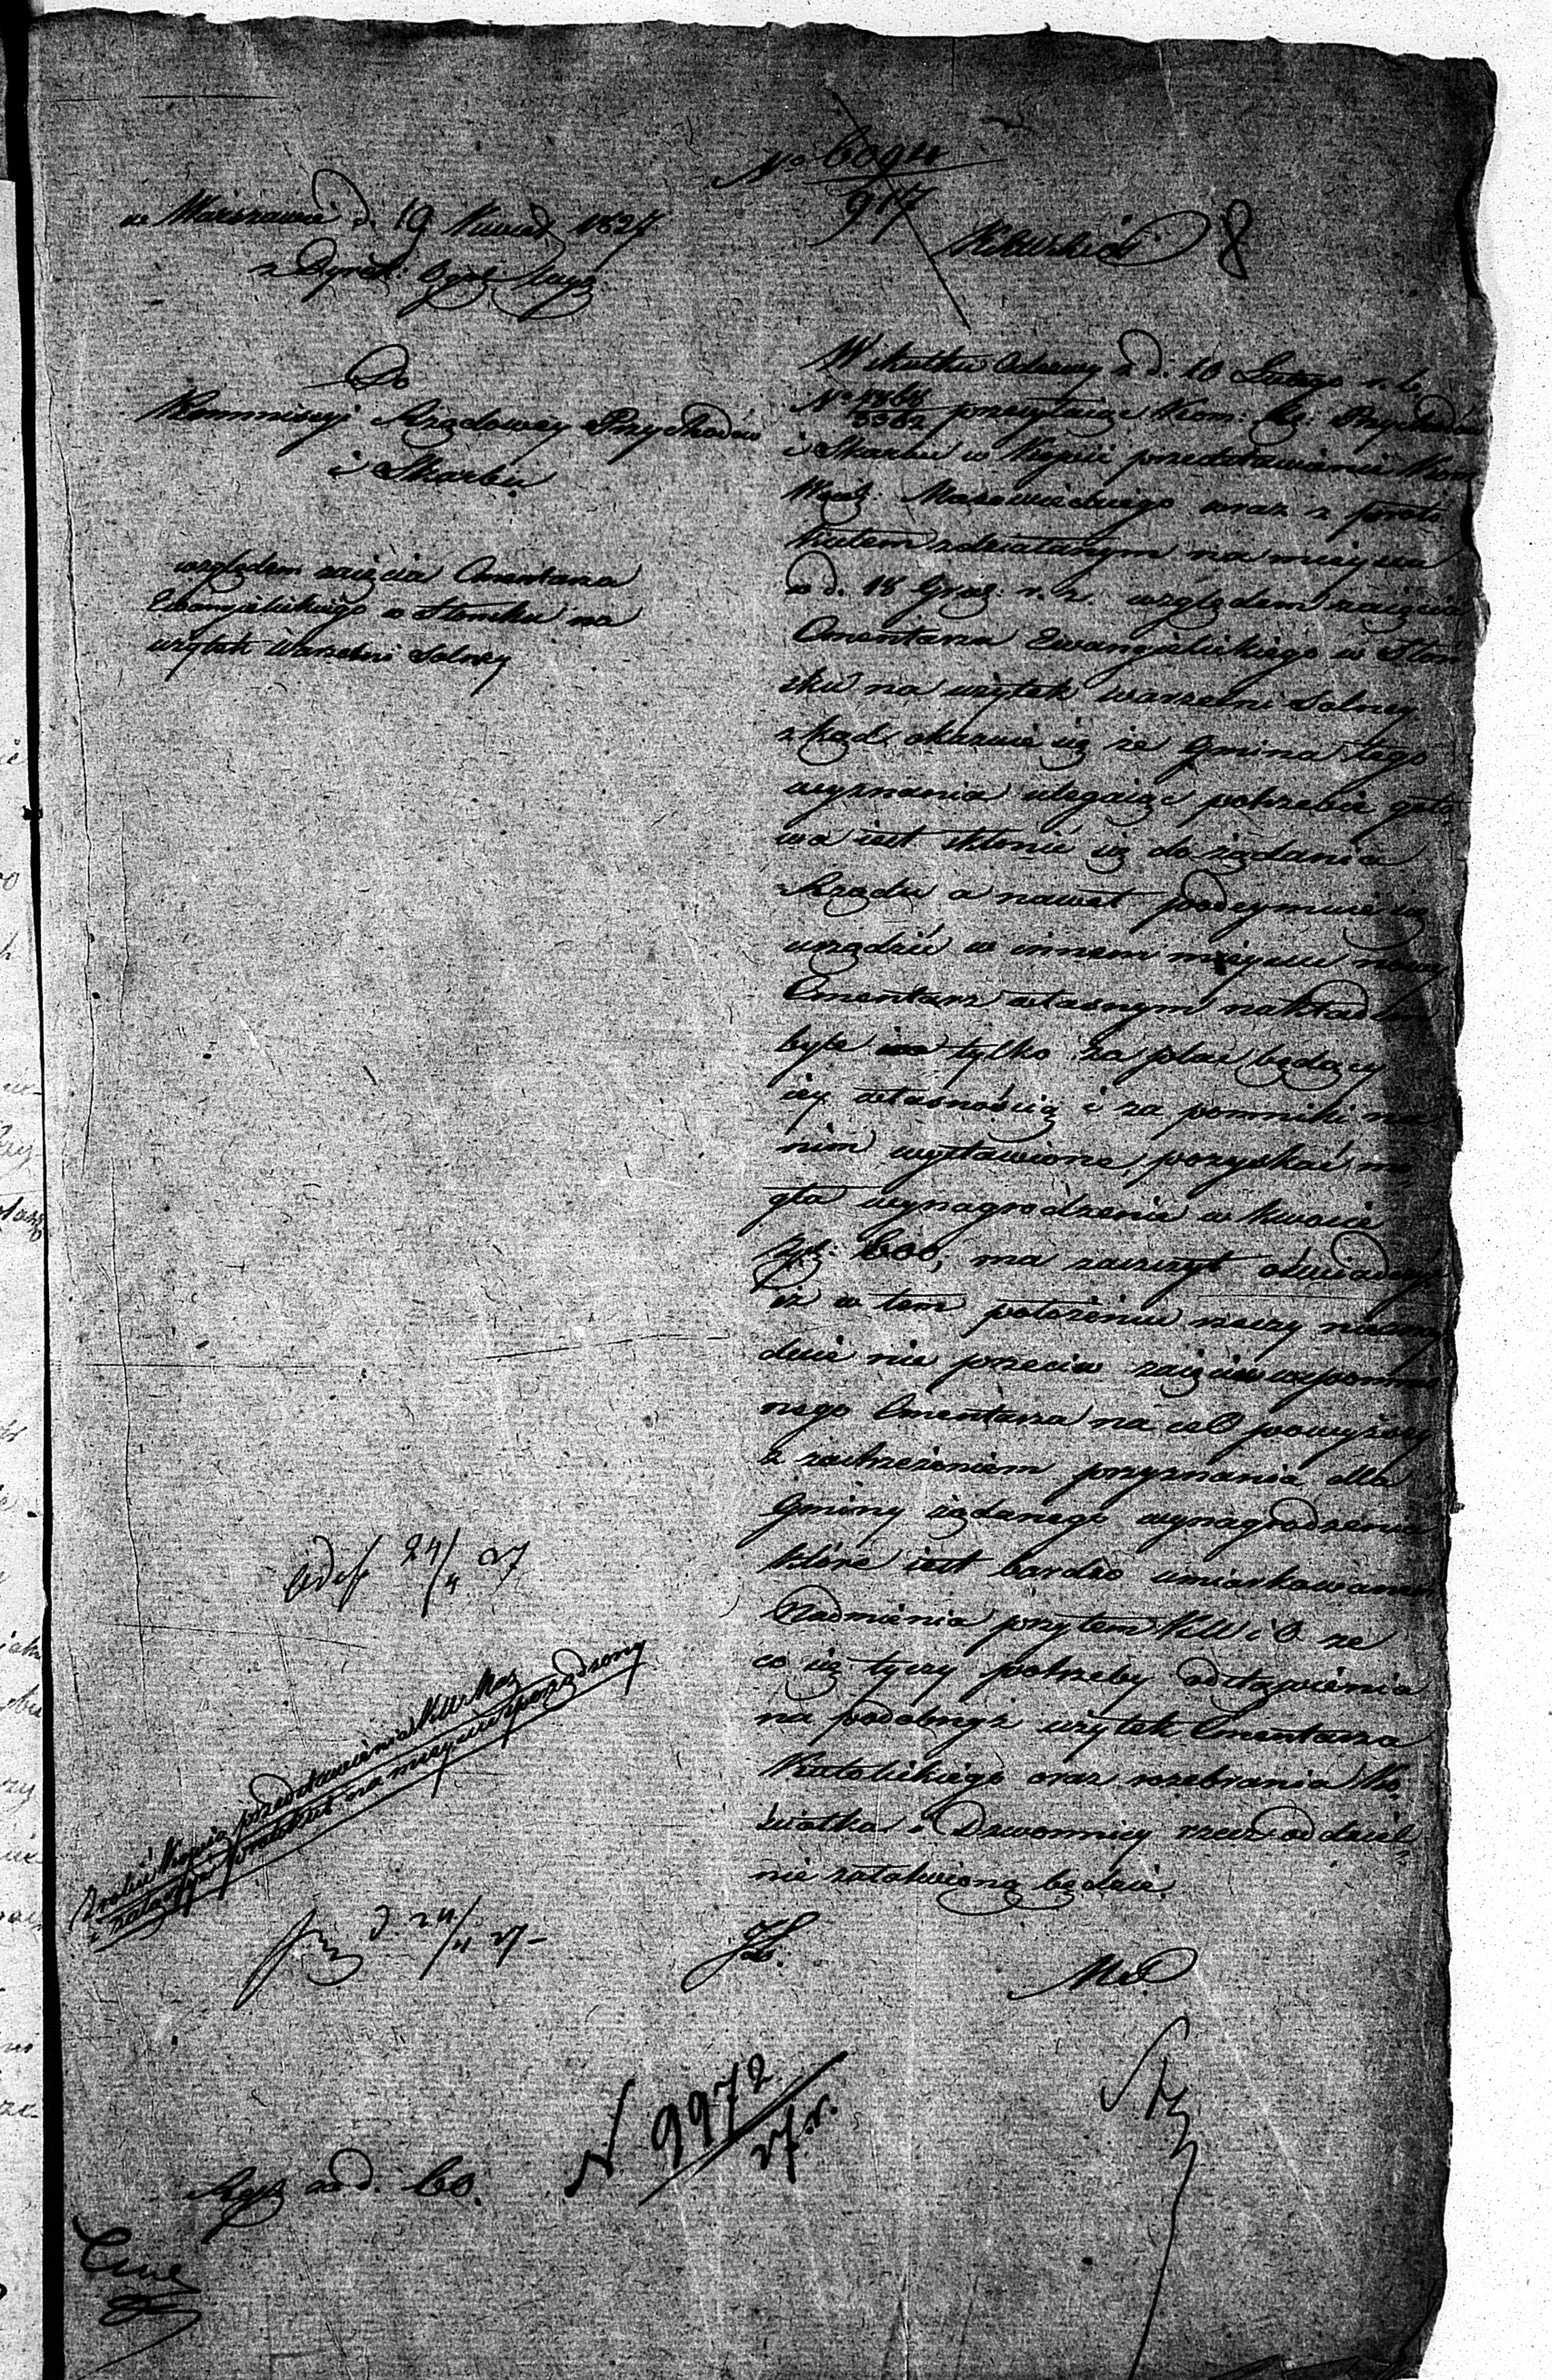 No 6094
917
w Warszawie d. 19 Kwiet. 1827
z Dyrek:
8
Do
Kommissyi Rządowey Przychodów
i Skarbu
względem zaięcia Cmentarza
Ewangielickiego w Słonsku na
użytek Warzelni Solney
W skutku Odezwy z d. 10 Lutego r. b.
No
5362 przesyłaiąc Kom: Rz: Przychodów
i Skarbu w Kopii przedstawienie Kom
Woiew: Mazowieckiego wraz z proto
kułem zdziałanym na mieyscu
w d. 18 Grud: r. z. względem zaięcia
Cmentarza Ewangielickiego w Słon
sku na użytek warzelni Solney
zkąd okazuie się że Gmina tego
wyznania ulegaiąc potrzebie goto
wa iest skłonić się do żądania
Rządu a nawet podeymuie się
urządzić w innem mieyscu nowy
Cmentarz własnym nakładem
byle tylko za plac będący
iey własnością i za pomniki na
nim wystawione, pozyskać mo
gła wynagrodzenie w kwocie
Złp: 600, ma zaszczyt oświadczyć
iż w tem położeniu rzeczy nieznay
duie nic przeciw zaięciu wspomnio
nego Cmentarza na cel powyższy
z zastrzeżeniem przyznania dla
Gminy żądanego wynagrodzenia
które iest bardzo umiarkowanem
Nadmienia przytem KW i O że
co się tyczy potrzeby odstąpienia
na podobnyż użytek Cmentarza
Katolickiego oraz rozebrania Ko
ściołka i Dzwonnicy rzecz oddziel
nie załatwioną będzie.
24/4 27
Zrobić Kopią przedstawienia KW Maz
i załączyć protokuł na mieyscu sporządzony
d. 24/4 27
MP
N 9972
27. r.